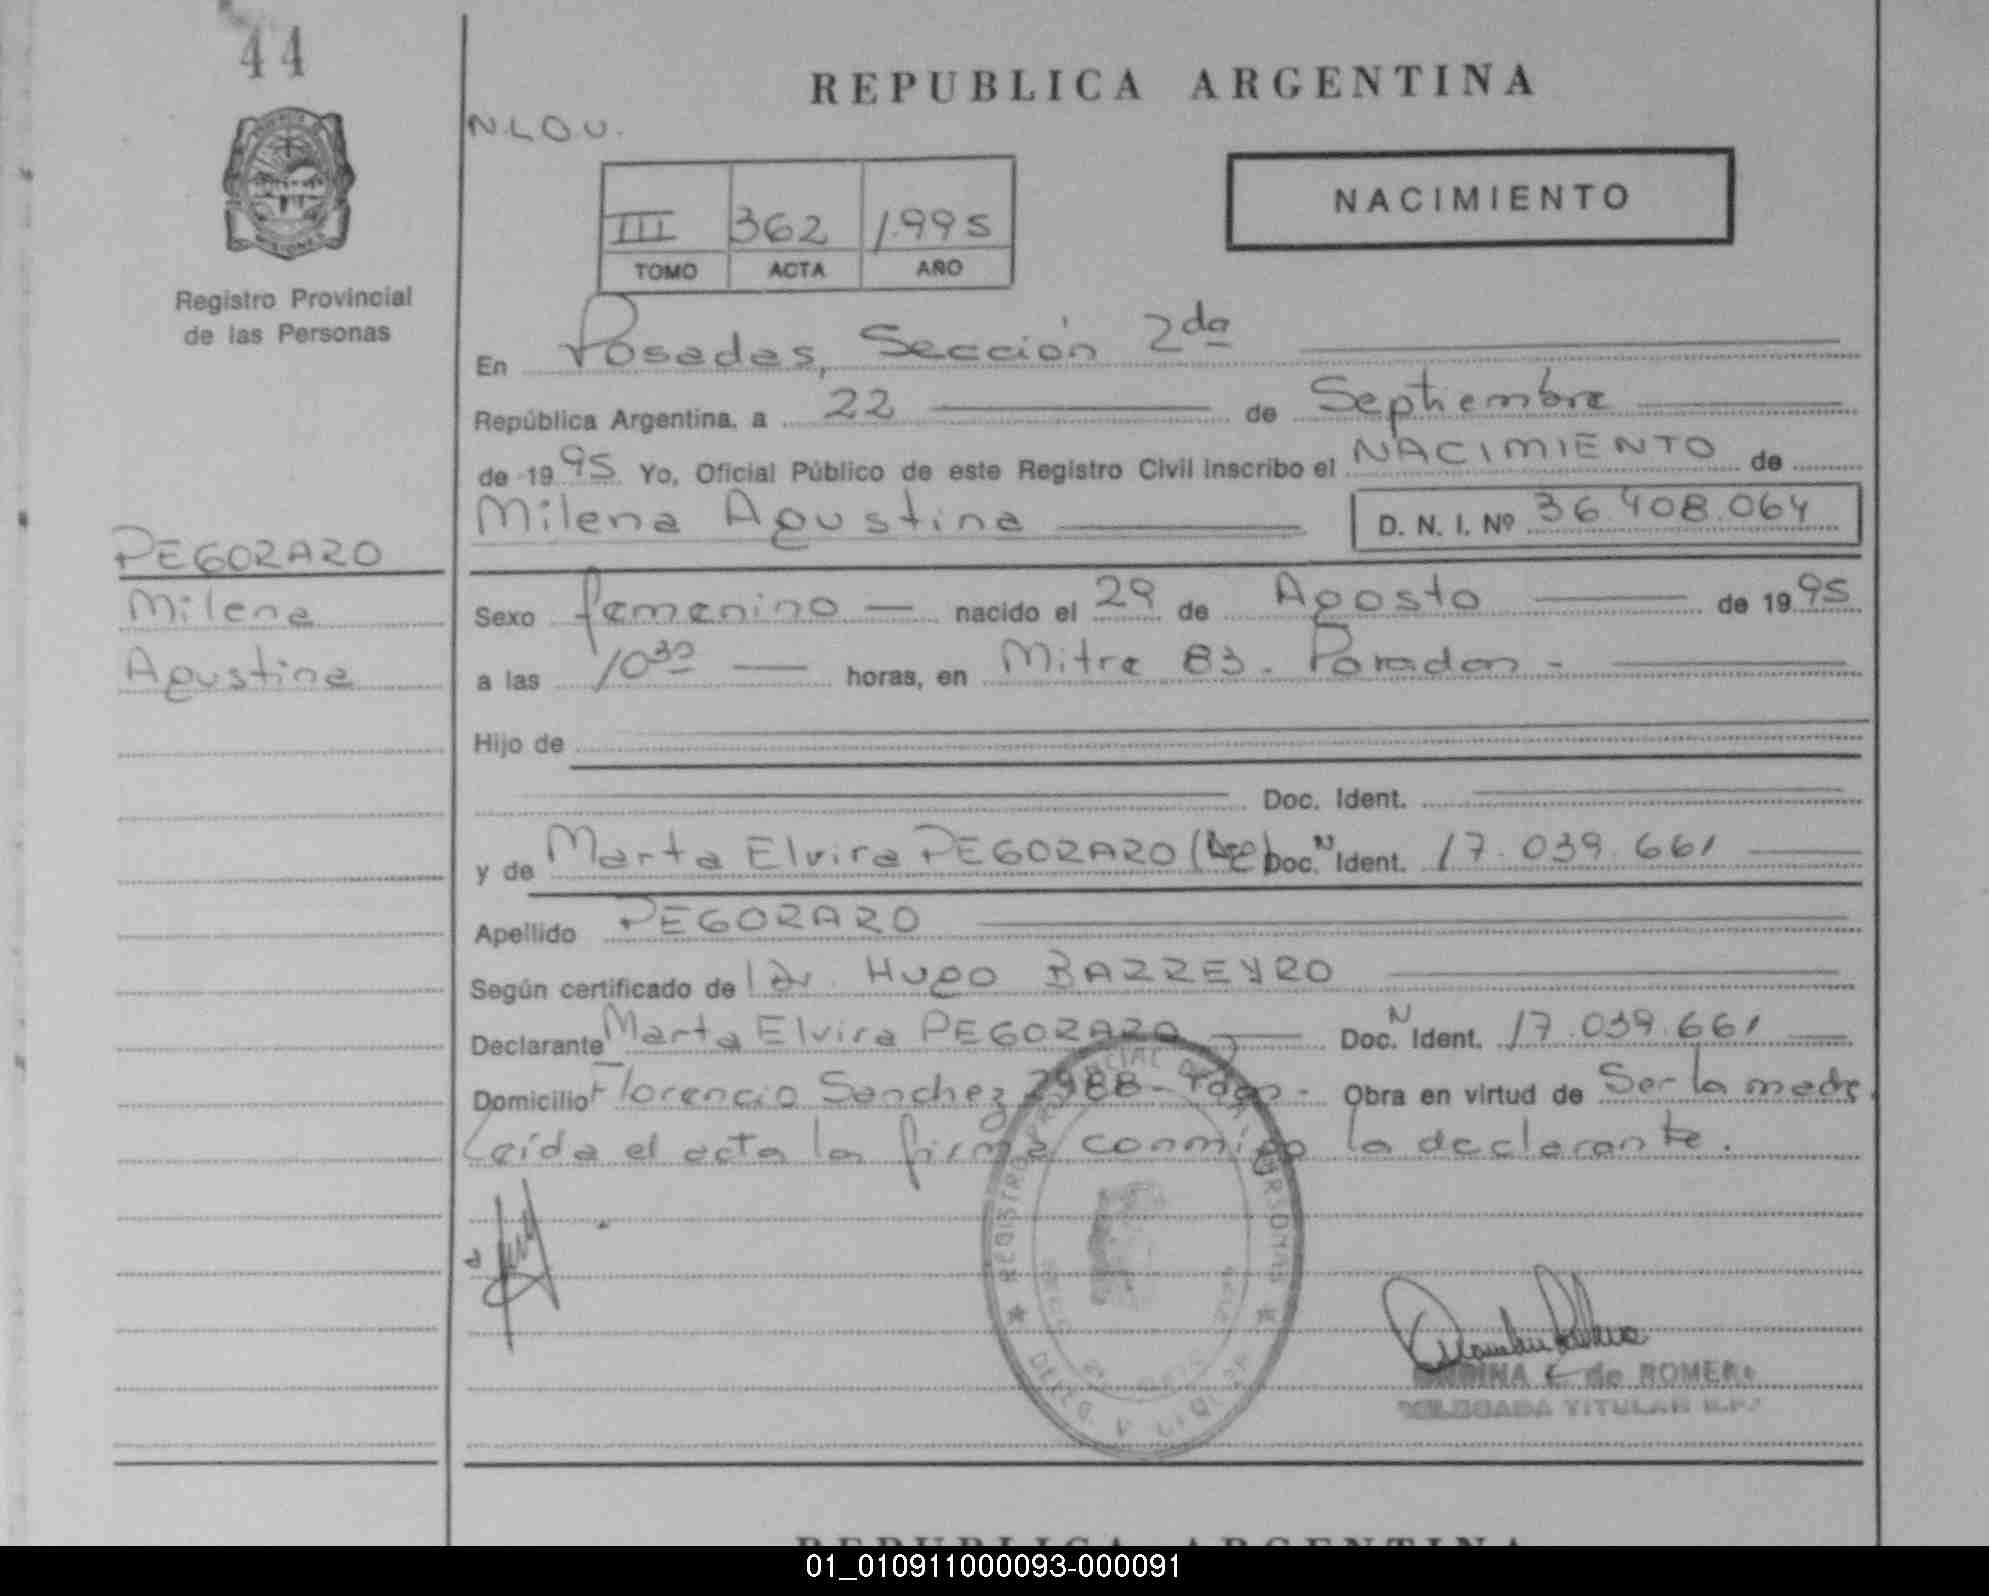 44
REPUBLICA ARGENTINA
N.L.O.U.
III 362 1.995
TOMO ACTA AÑO
NACIMIENTO
Registro Provincial
de las Personas
En Posadas, Sección 2da
República Argentina, a 22 de Septiembre
de 1995 Yo, Oficial Público de este Registro Civil inscribo el NACIMIENTO de
Milena Agustina D. N. I. Nº 36.408.064
PEGORARO
Milena
Agustina
Sexo femenino nacido el 29 de Agosto de 1995
a las 10³⁰ horas, en Mitre 83. Posadas -
Hijo de
Doc. Ident.
y de Marta Elvira PEGORARO (Arg) Doc. N Ident. 17.039.661
Apellido PEGORARO
Según certificado de Dr. Hugo BARREYRO
Declarante Marta Elvira PEGORARO Doc. N Ident. 17.039.661
Domicilio Florencio Sanchez 2988 - Pdas. Obra en virtud de Ser la madre.
Leída el acta la firma conmigo la declarante.
REGISTRO PROVINCIAL DE LAS PERSONAS
de ROMERO
DELEGADA TITULAR R.P.
REPUBLICA ARGENTINA
01_010911000093-000091